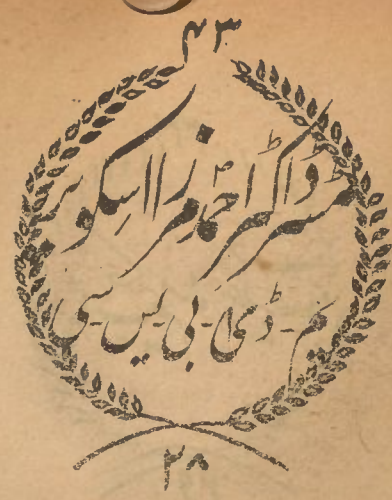 ۴۳
مسٹر ڈاکٹر احمد مرزا اسکویر
یم-ڈی-بی-یس-سی
۲۸